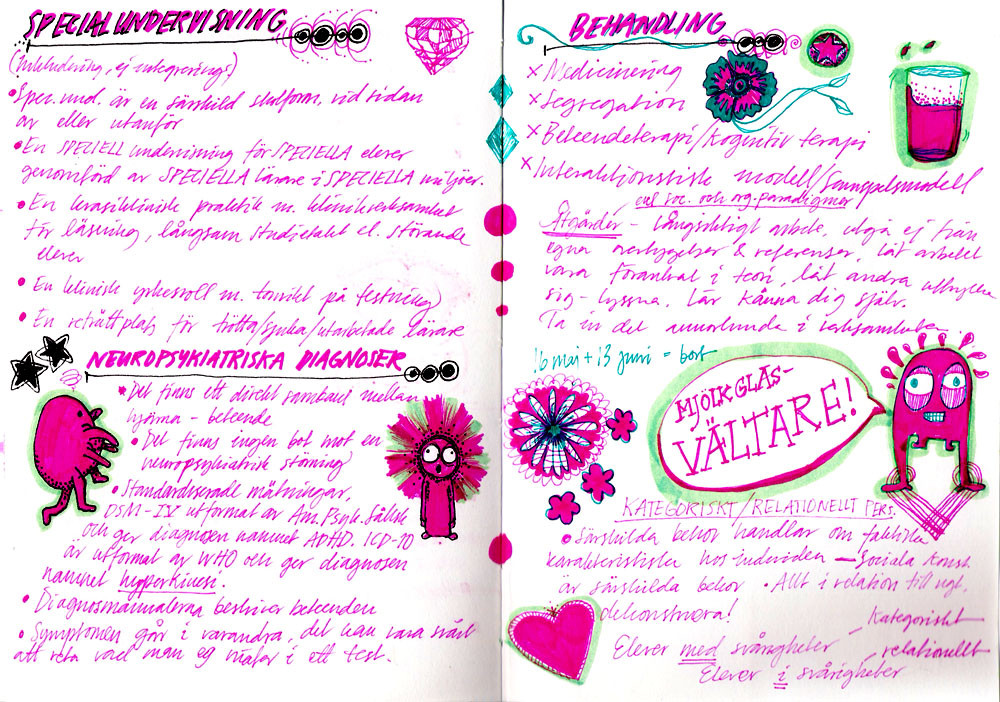 SPECIALUNDERVISNING
(Inkludering, ej integrering!)
• Spec. und. är en särskild skolform, vid sidan
av eller utanför
• En SPECIELL undervisning för SPECIELLA elever
genomförd av SPECIELLA lärare i SPECIELLA miljöer.
• En klinisk praktik m. klinikverksamhet
för läsning, långsam studietakt el. störande
elever
• En klinisk yrkesroll m. tonvikt på testning
• En reträttplats för trötta/sjuka/utarbetade lärare
NEUROPSYKIATRISKA DIAGNOSER
• Det finns ett direkt samband mellan
hjärna - beteende
• Det finns ingen bot mot en
neuropsykiatrisk störning
• Standardiserade mätningar,
DSM-IV utformat av Am. Psyk. Sällsk
och ger diagnosen namnet ADHD. ICD-10
är utformat av WHO och ger diagnosen
namnet hyperkinesi.
• Diagnosmanualerna beskriver beteenden
• Symptomen går i varandra, det kan vara svårt
att veta vad man eg mäter i ett test.
BEHANDLING
x Medicinering
x Segregation
x Beteendeterapi/Kognitiv terapi
x Interaktionistisk modell/Samspelsmodell
enl soc. och org. paradigmer
Åtgärder - långsiktigt arbete, utgå ej från
egna verktyg & referenser, låt arbetet
vara förankrat i teori, låt andra uttrycka
sig - lyssna. Lär känna dig själv.
Ta in det annorlunda i verksamheten.
16 maj + 13 juni = bort
MJÖLKGLAS-
VÄLTARE!
KATEGORISKT/RELATIONELLT PERS.
• Särskilda behov handlar om faktiska
karakteristika hos individen - Sociala konst.
är särskilda behov • Allt i relation till ngt,
dekonstruera!
Elever med svårigheter - Kategoriskt
Elever i svårigheter - relationellt